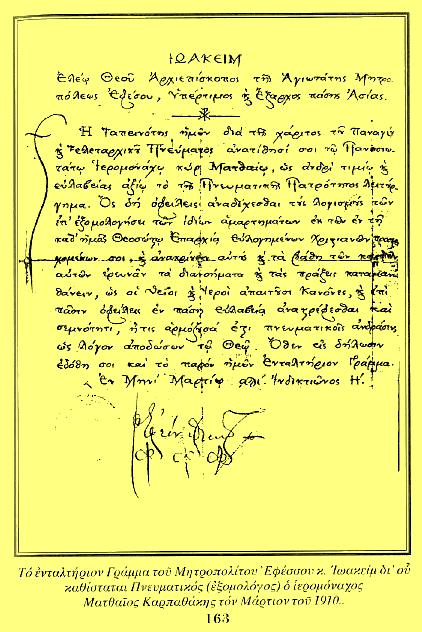 ΙΩΑΚΕΙΜ
Ελέῳ Θεοῦ Ἀρχιεπίσκοπος τῆς Ἁγιωτάτης Μητρο
πόλεως Ἐφέσου, Ὑπέρτιμος ϗ Ἔξαρχος πάσης Ἀσίας.
Ἡ Ταπεινότης ἡμῶν διὰ τῆς χάριτος τοῦ Παναγίου
ϗ Τελεταρχικοῦ Πνεύματος ἀνατίθησί σοι τῷ Πανοσιω
τάτῳ Ἱερομονάχῳ κυρῷ Ματθαίῳ, ὡς ἀνδρὶ τιμίῳ ϗ
εὐλαβείας ἀξίῳ τὸ τῆς Πνευματικῆς Πατρότητος λειτούρ
γημα. Ὡς δὴ ὀφείλεις ἀναδέχεσθαι τοὺς λογισμοὺς τῶν
ἐπ' ἐξομολογήσει τῶν ἰδίων ἁμαρτημάτων ἐκ τῶν ἐν τῇ
καθ' ἡμᾶς Θεοσώστῳ Ἐπαρχίᾳ Εὐλογημένων Χριστιανῶν
σοι, ϗ ἀνακρίνειν αὐτοὺς ϗ τὰ βάθη τῶν καρδιῶν
αὐτῶν ἐρευνᾶν τὰ διανοήματα ϗ τὰς πράξεις καταμαν
θάνειν, ὡς οἱ Θεῖοι ϗ Ἱεροὶ ἀπαιτοῦσι Κανόνες, ϗ ἐπὶ
πᾶσιν ὀφείλεις ἐν πάσῃ εὐλαβείᾳ ἀναστρέφεσθαι καὶ
σεμνότητι, ἥτις ἁρμόζουσα ἐστὶ πνευματικοῖς ἀνδράσιν,
ὡς λόγον ἀποδώσων τῷ Θεῷ. Ὅθεν εἰς δήλωσιν
ἐδόθη σοι καὶ τὸ παρὸν ἡμῶν Ἐνταλτήριον Γράμμα.
Ἐν Μηνὶ Μαρτίῳ Ἰνδικτιῶνος Η΄.
Τό ἐνταλτήριον Γράμμα τοῦ Μητροπολίτου Ἐφέσσου κ. Ἰωακείμ δι' οὗ
καθίσταται Πνευματικός (ἐξομολόγος) ὁ ἱερομόναχος
Ματθαῖος Καρπαθάκης τόν Μάρτιον τοῦ 1910..
163